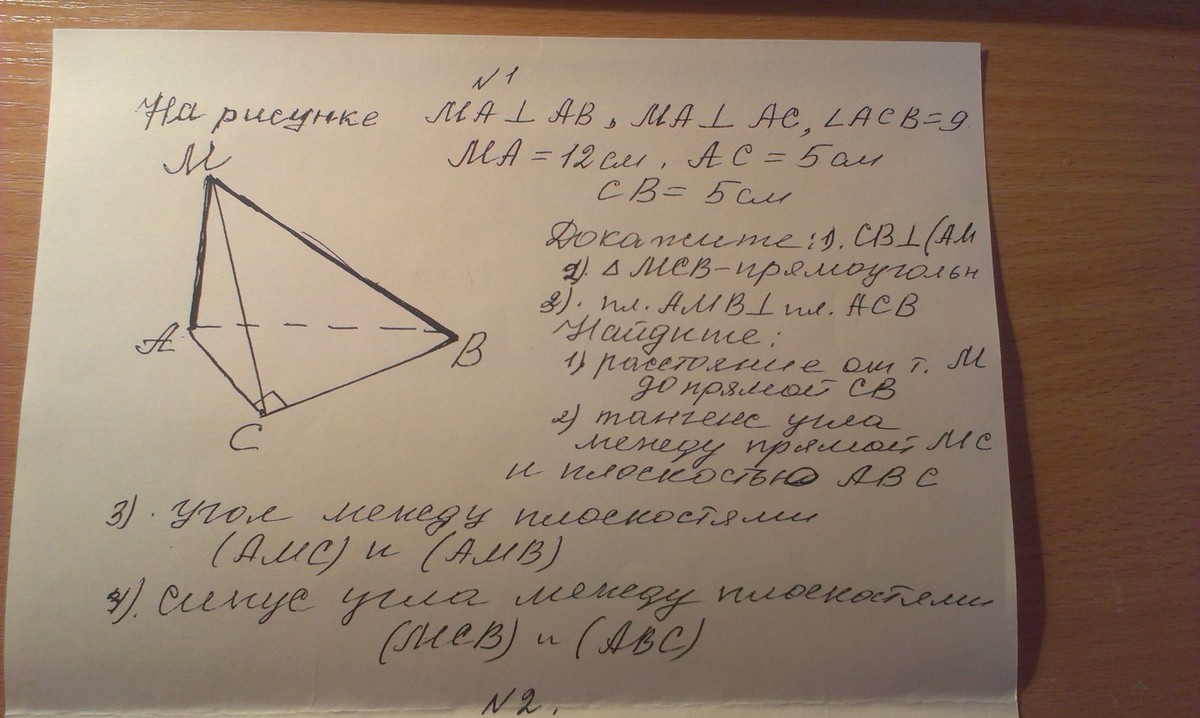 N1
На рисунке MA⊥AB, MA⊥AC, ∠ACB=9
M
MA=12см. AC=5см
CB=5см
Докажите: 1). CB⊥(AM
2). △MCB-прямоугольн
3). пл. AMB⊥пл. ACB
A
B
C
Найдите:
1) расстояние от т. M
до прямой CB
2) тангенс угла
между прямой MC
и плоскостью ABC
3). Угол между плоскостями
(AMC) и (AMB)
4). Синус угла между плоскостями
(MCB) и (ABC)
N2.